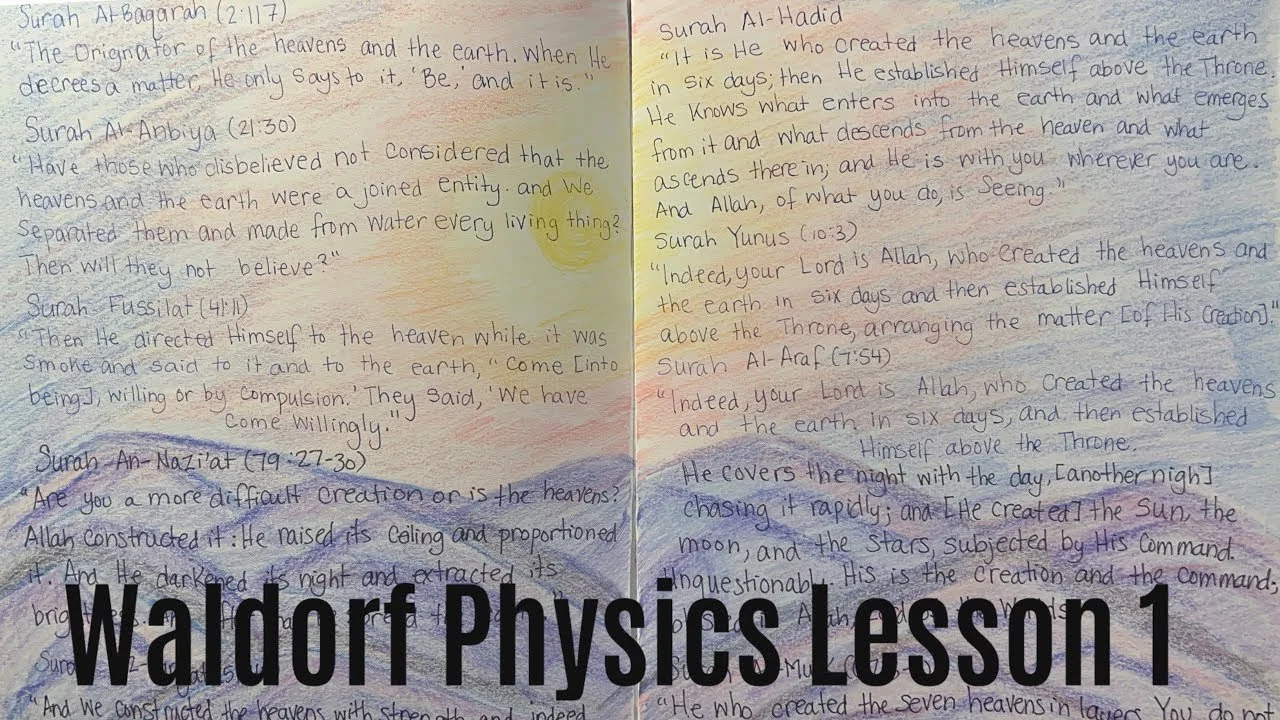 Surah Al-Baqarah (2:117)
"The Orignator of the heavens and the earth. When He
decrees a matter, He only says to it, 'Be,' and it is."
Surah Al-Anbiya (21:30)
"Have those who disbelieved not considered that the
heavens and the earth were a joined entity. and We
Separated them and made from water every living thing?
Then will they not believe?"
Surah Fussilat (41:11)
"Then He directed Himself to the heaven while it was
smoke and said to it and to the earth, "Come [into
being], willing or by compulsion.' They said, 'We have
Come willingly."
Surah An-Nazi'at (79:27-30)
"Are you a more difficult creation or is the heavens?
Allah constructed it: He raised its Ceiling and proportioned
it. And He darkened its night and extracted its
"And we constructed the heavens with strength and indeed
Surah Al-Hadid
"It is He who created the heavens and the earth
in six days; then He established Himself above the Throne.
He Knows what enters into the earth and what emerges
from it and what descends from the heaven and what
ascends there in; and He is with you wherever you are.
And Allah, of what you do, is Seeing."
Surah Yunus (10:3)
"Indeed, your Lord is Allah, who created the heavens and
the earth in six days and then established Himself
above the Throne, arranging the matter [of His Creation]."
Surah Al-Araf (7:54)
"Indeed, your Lord is Allah, who created the heavens
and the earth in six days, and then established
Himself above the Throne.
He covers the night with the day, [another nigh]
chasing it rapidly; and [He created] the Sun, the
moon, and the stars, subjected by His Command.
Unquestionabl. His is the Creation and the command;
Allah
"He who created the seven heavens in layers. You do not
Waldorf Physics Lesson 1